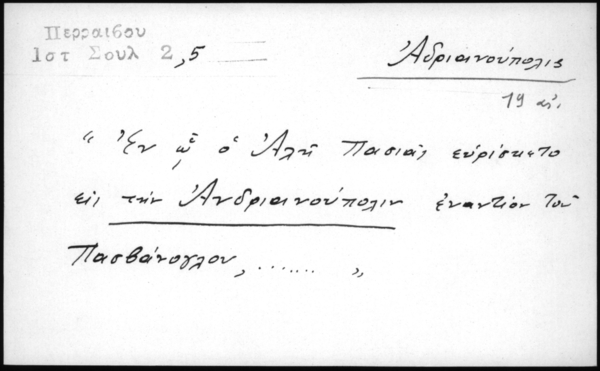 Περραιβου
1στ Σουλ 2,5
Ἀδριανούπολις
19 αἰ.
"Ἐν ᾧ ὁ Ἀλῆ Πασιᾶς εὑρίσκετο
εἰς τὴν Ἀνδριανούπολιν ἐναντίον τοῦ
Πασβάνογλου, ....... "